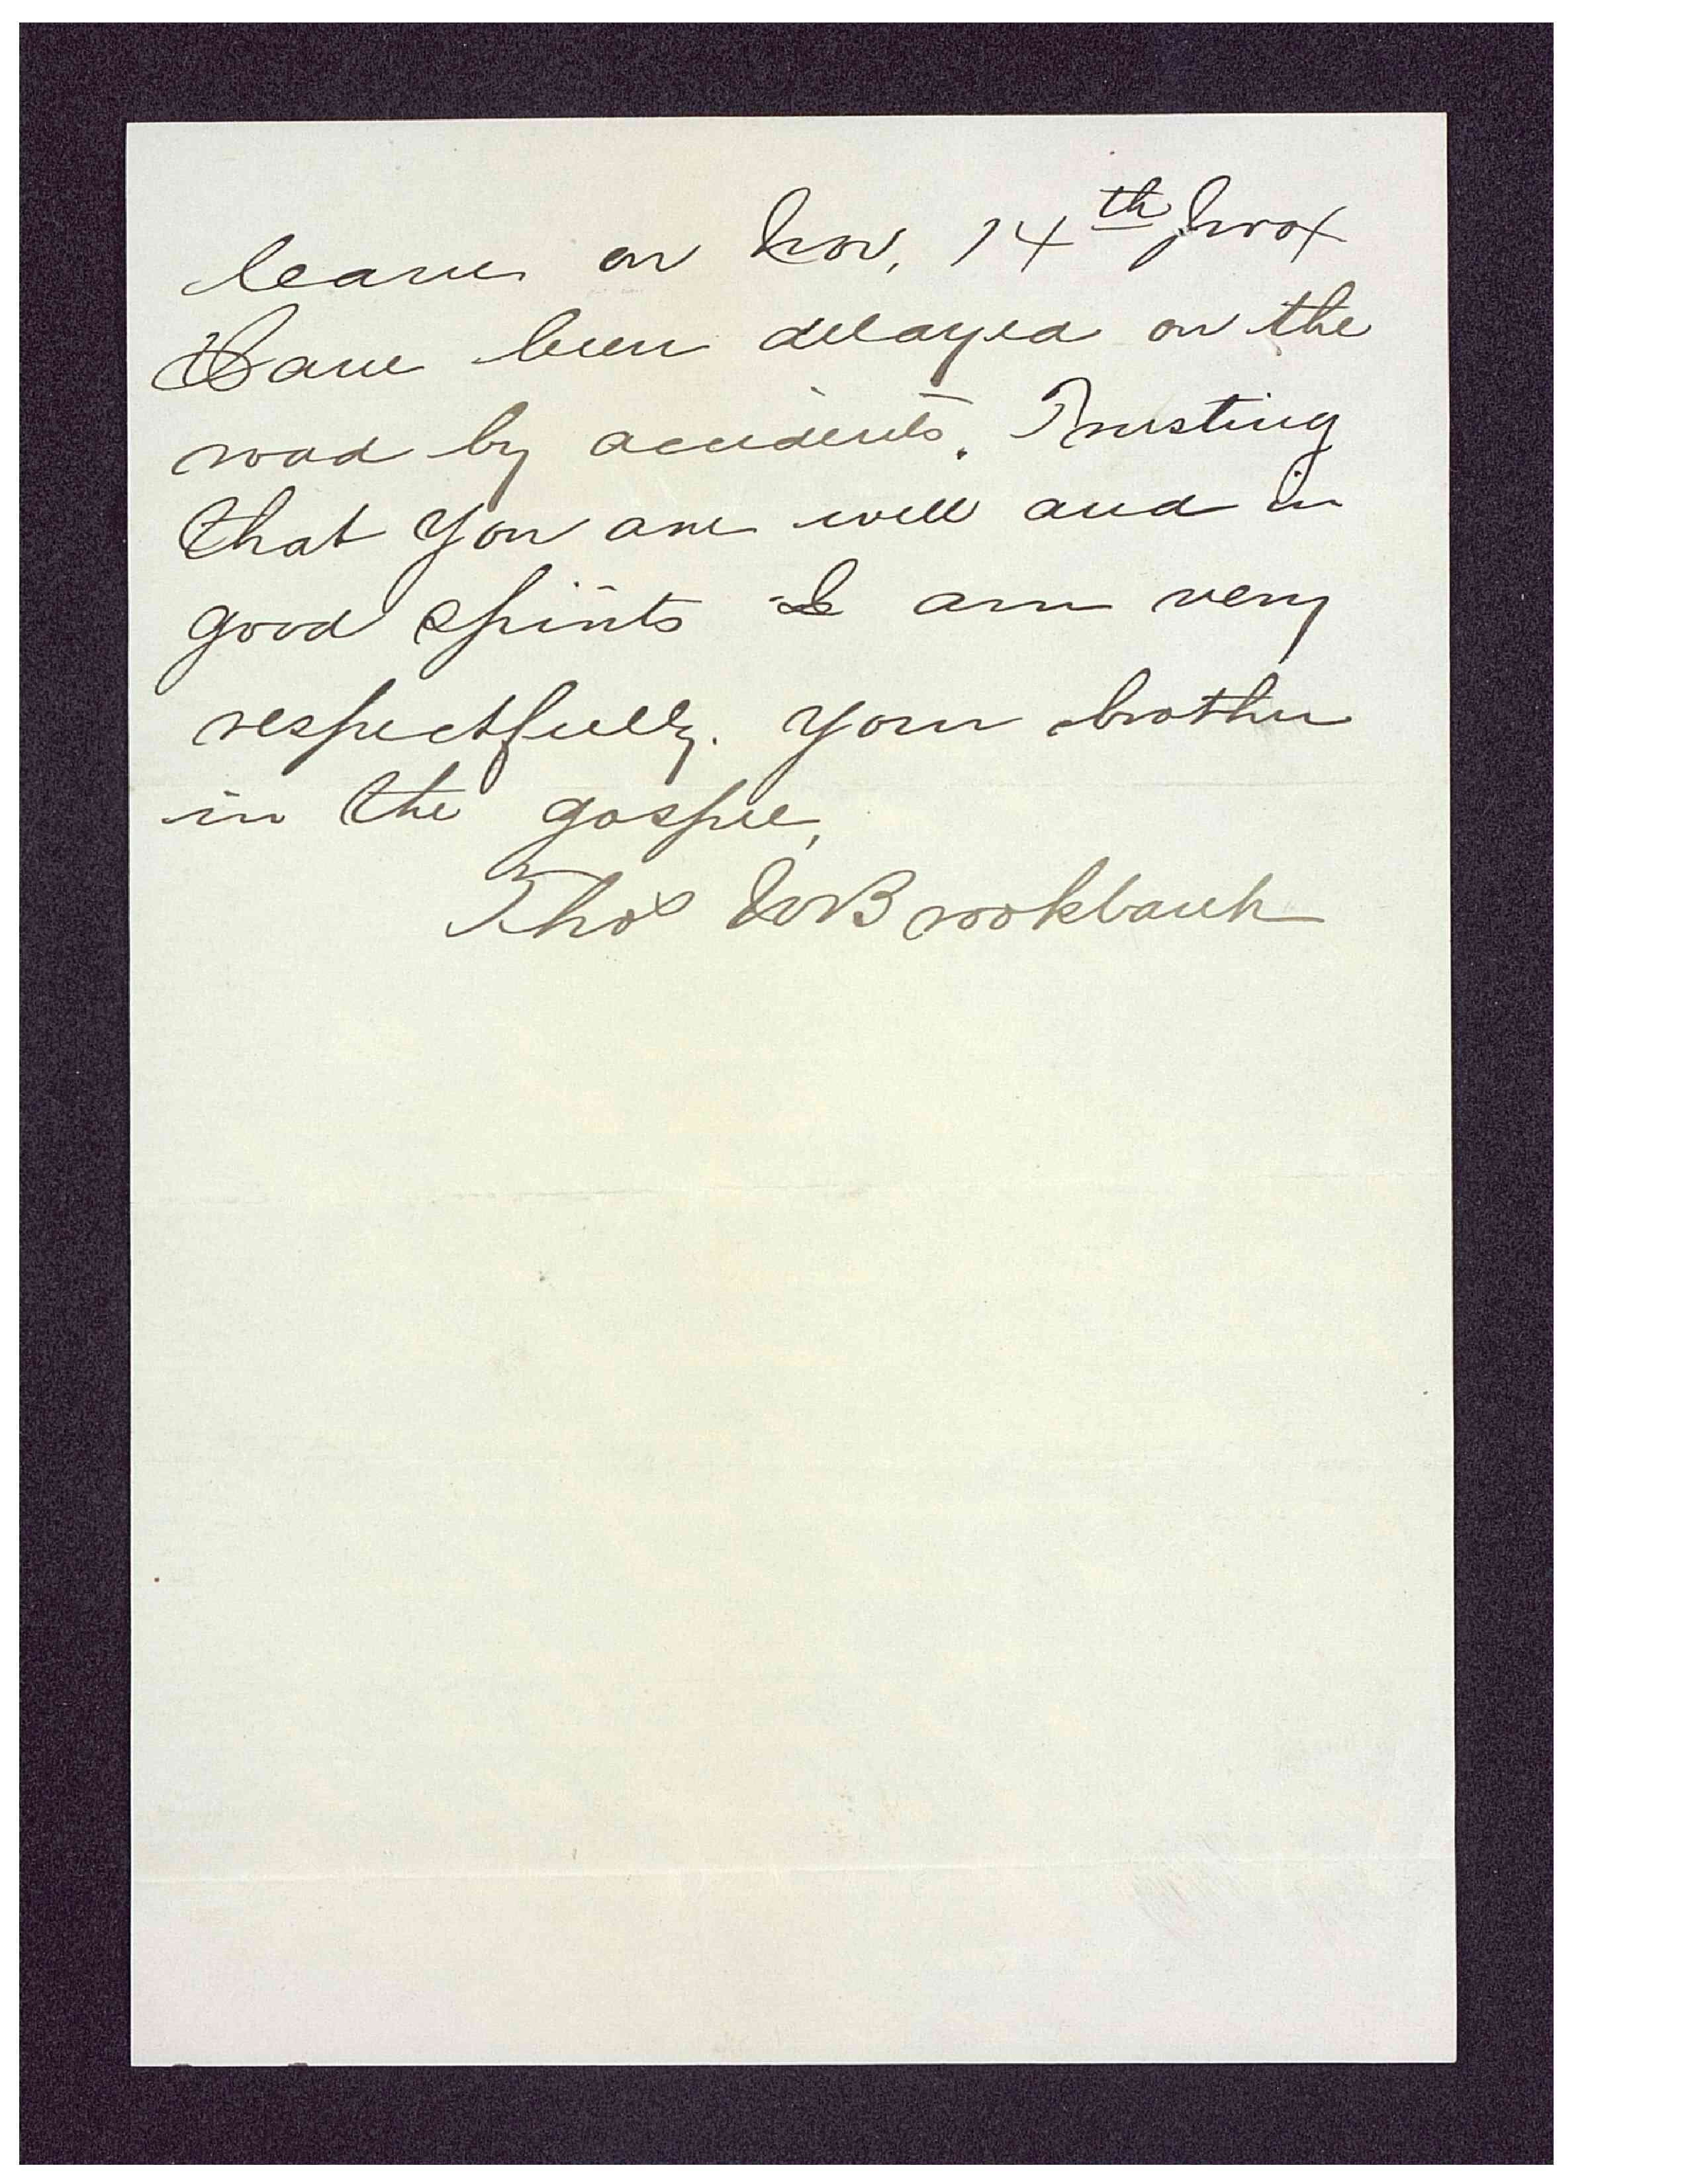 leave on Nov. 14th prox
Have been delayed on the
road by accidents. Trusting
that you are well and in
good spirits I am very
respectfully. your brother
in the gospel,
Thos W Brookbank